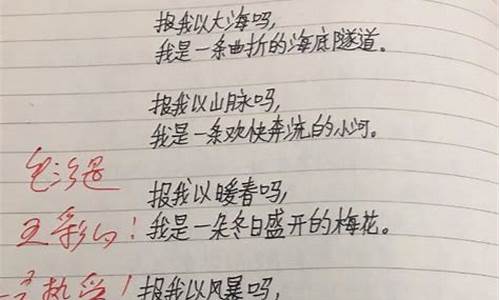 报我以大海吗,
我是一条曲折的海底隧道。
报我以山脉吗,
我是一条欢快奔流的小河。
报我以暖春吗,
我是一朵冬日盛开的梅花。
报我以风暴吗,